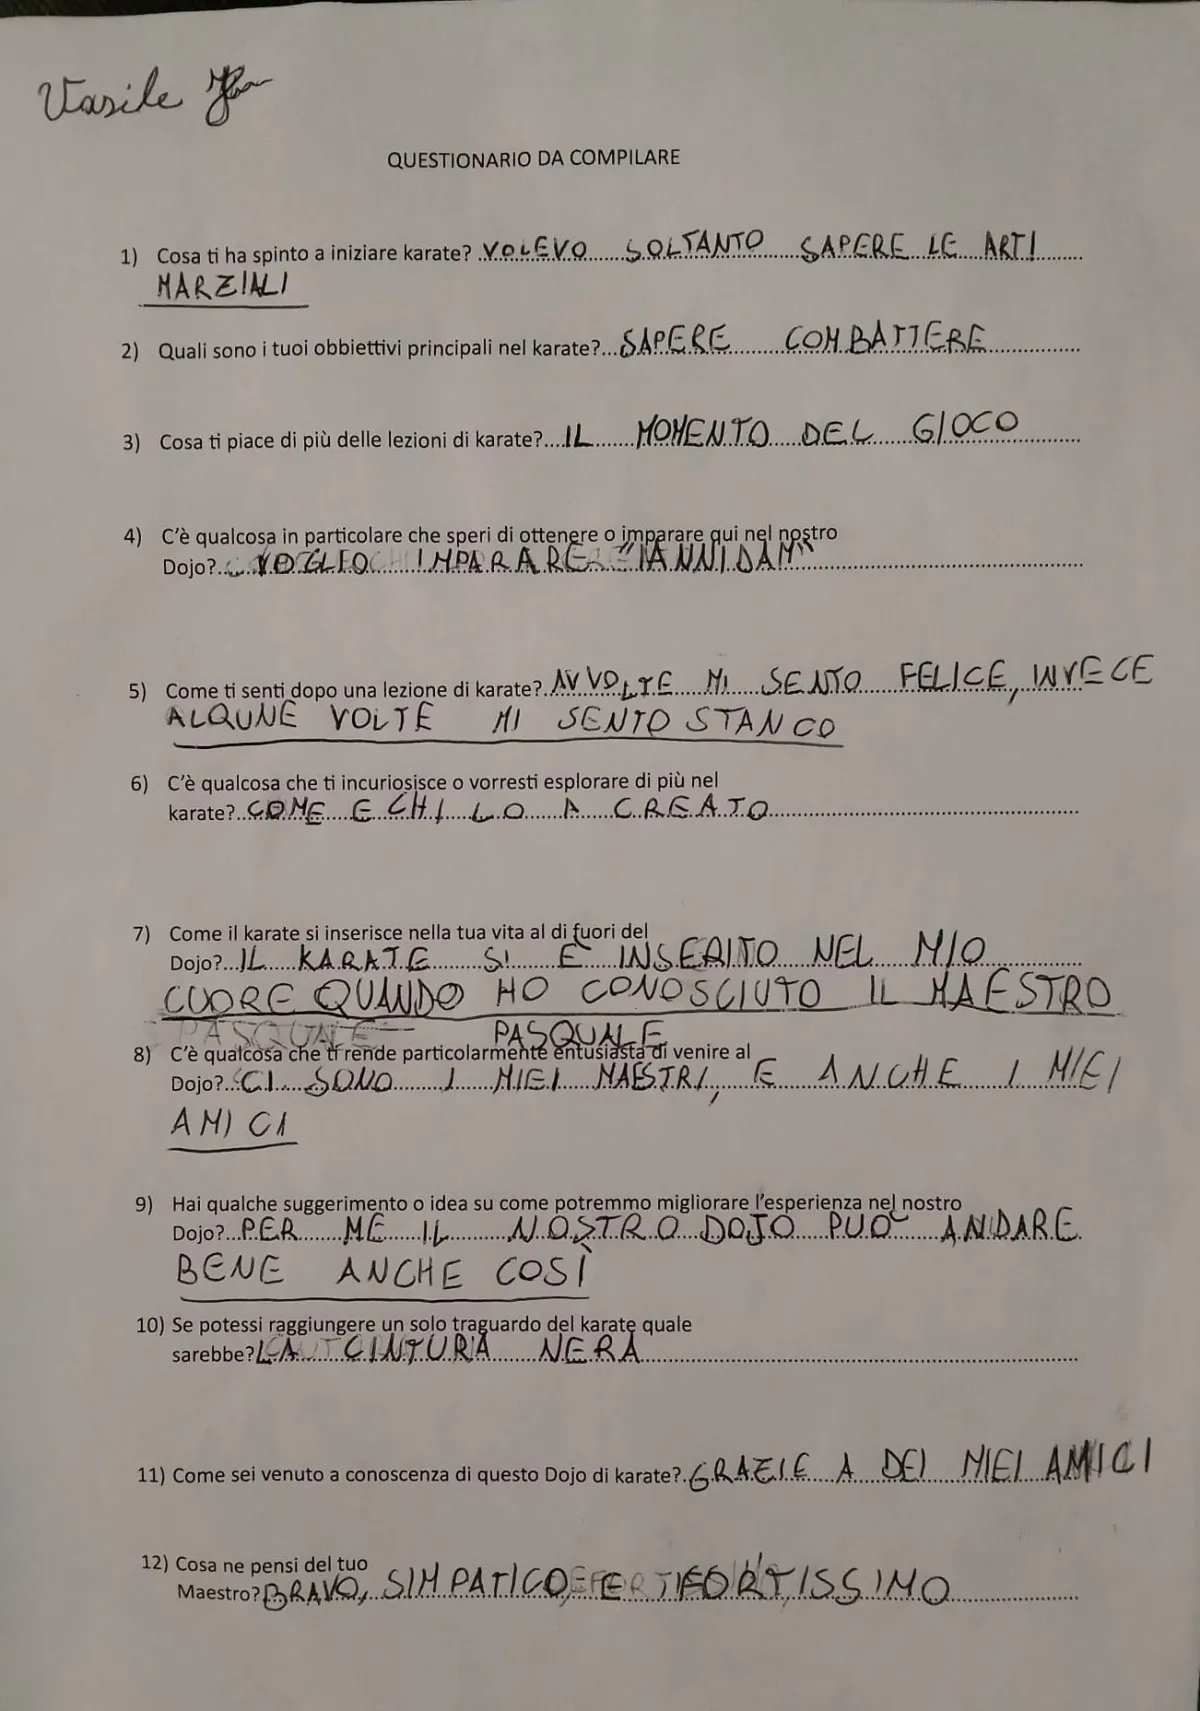 Vasile
QUESTIONARIO DA COMPILARE
1) Cosa ti ha spinto a iniziare karate? VOLEVO SOLTANTO SAPERE LE ARTI
MARZIALI
2) Quali sono i tuoi obbiettivi principali nel karate?... SAPERE COMBATTERE
3) Cosa ti piace di più delle lezioni di karate?... IL MOMENTO DEL GIOCO
4) C'è qualcosa in particolare che speri di ottenere o imparare qui nel nostro
Dojo?... VOGLIO IMPARARE "IANNIDAN"
5) Come ti senti dopo una lezione di karate?. AVVOLTE MI SENTO FELICE, INVECE
ALQUNE VOLTE MI SENTO STANCO
6) C'è qualcosa che ti incuriosisce o vorresti esplorare di più nel
karate?.. COME E CHI LO A CREATO
7) Come il karate si inserisce nella tua vita al di fuori del
Dojo?... IL KARATE SI È INSERITO NEL MIO
CUORE QUANDO HO CONOSCIUTO IL MAESTRO
PASQUALE
8) C'è qualcosa che ti rende particolarmente entusiasta di venire al
Dojo?.. CI SONO I MIEI MAESTRI, E ANCHE I MIEI
AMICI
9) Hai qualche suggerimento o idea su come potremmo migliorare l'esperienza nel nostro
Dojo?... PER ME IL NOSTRO DOJO PUÒ ANDARE
BENE ANCHE COSÌ
10) Se potessi raggiungere un solo traguardo del karate quale
sarebbe? LA CINTURA NERA
11) Come sei venuto a conoscenza di questo Dojo di karate?. GRAZIE A DEI MIEI AMICI
12) Cosa ne pensi del tuo
Maestro? BRAVO, SIMPATICO, E FORTISSIMO